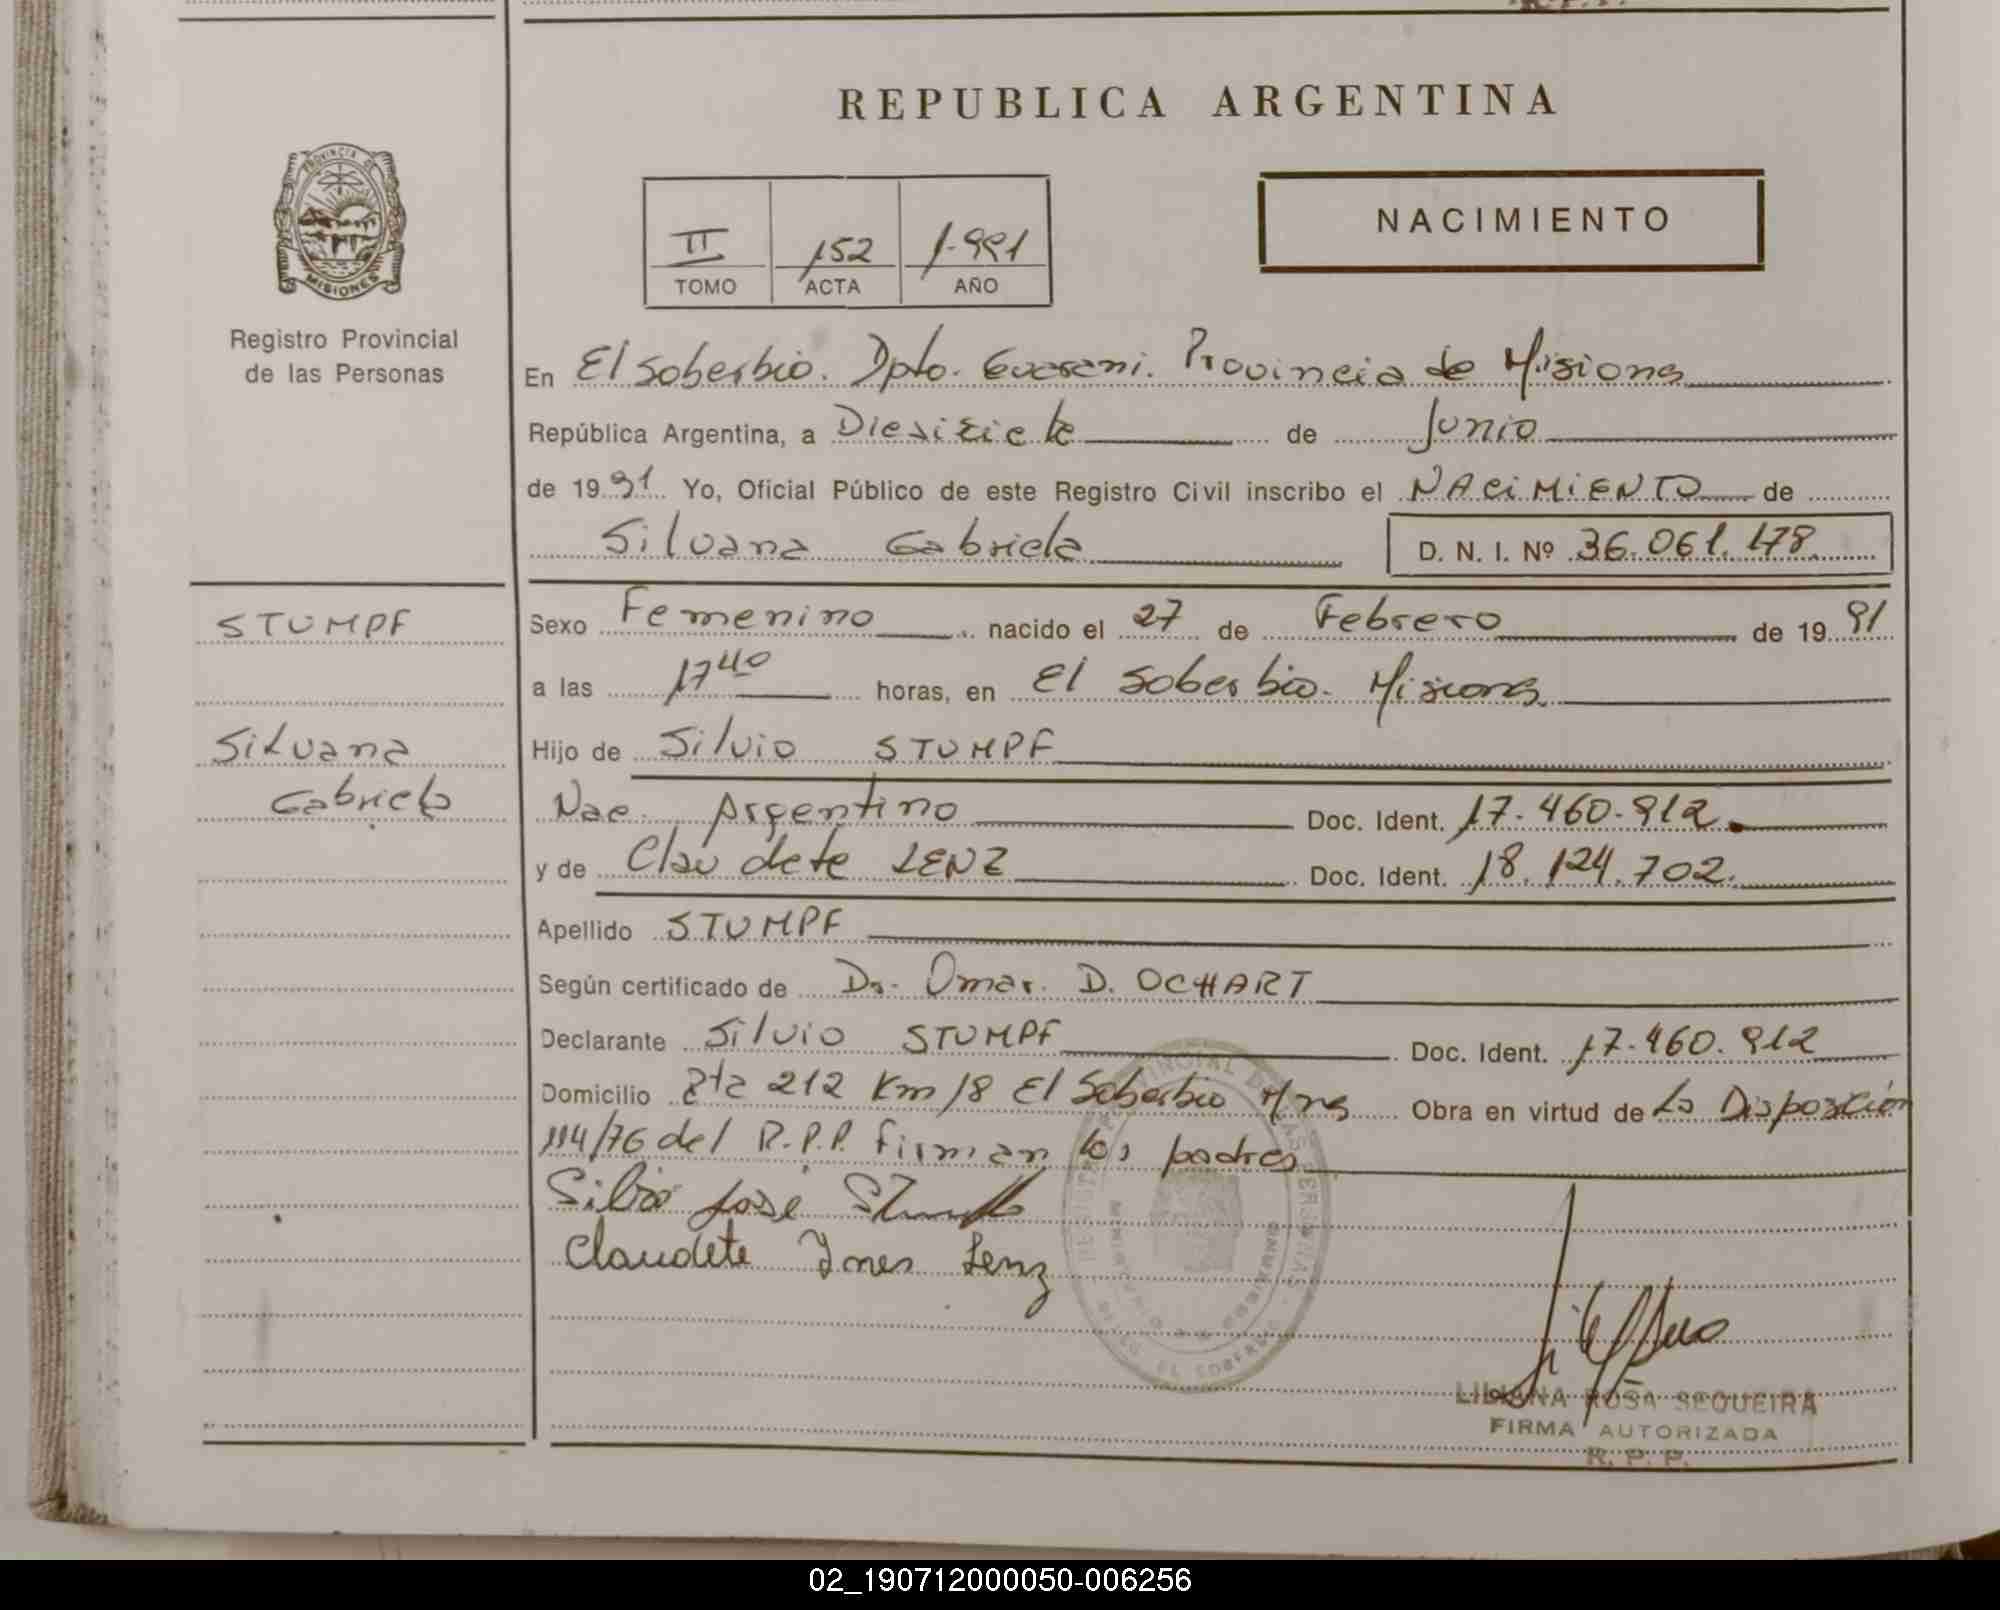 REPUBLICA ARGENTINA
PROVINCIA DE
MISIONES
Registro Provincial
de las Personas
II 152 1.991
TOMO ACTA AÑO
NACIMIENTO
En El Soberbio. Dpto. Guarani. Provincia de Misiones
República Argentina, a Diesisiete de Junio
de 1991 Yo, Oficial Público de este Registro Civil inscribo el NACIMIENTO de
Silvana Gabriela D. N. I. Nº 36.061.178
STUMPF
Silvana
Gabriela
Sexo Femenino nacido el 27 de Febrero de 1991
a las 17 40 horas, en El Soberbio. Misiones.
Hijo de Silvio STUMPF
Nac. Argentino Doc. Ident. 17.460.912.
y de Claudete LENZ Doc. Ident. 18.124.702.
Apellido STUMPF
Según certificado de Dr. Omar. D. OCHART
Declarante Silvio STUMPF Doc. Ident. 17.460.912
Domicilio Rta 212 Km 18 El Soberbio Mns Obra en virtud de La Disposición
114/76 del R.P.P. Firman los padres
Silvio José Stumpf
Claudete Ines Lenz
LILIANA ROSA SEQUEIRA
FIRMA AUTORIZADA
R. P. P.
02_190712000050-006256